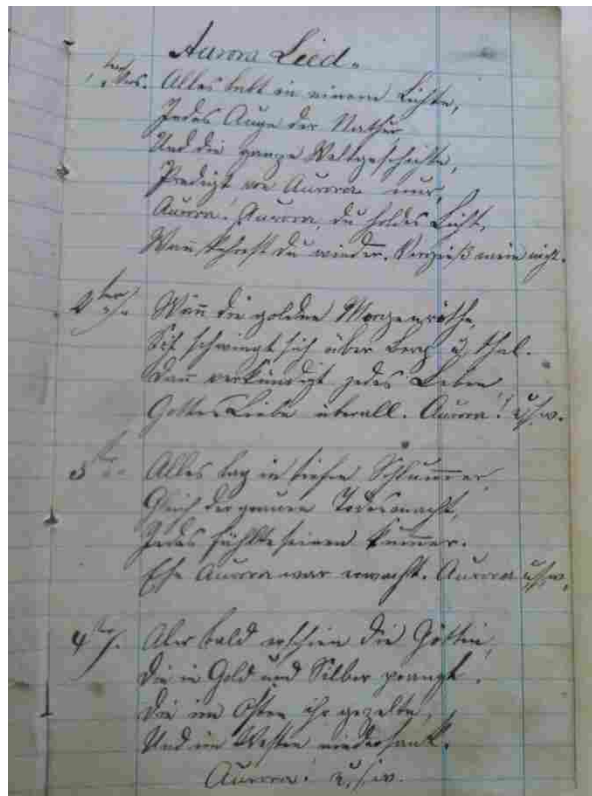 Aurora Lied.
1ter Vers. Alles lebt in einem Lichte,
Jedes Auge der Nathur
Und die ganze Weltgeschichte,
Predigt von Aurora nur,
Aurora! Aurora, du holdes Licht,
Wann kehrst du wieder. Vergieß mein nicht.
2ter Wenn die goldne Morgenröthe,
Sich schwingt sich über Berg u. Thal.
Dann verkündigt jedes Leben
Gottes Liebe überall. Aurora! u.s.w.
3ter Alles lag in tiefen Schlummer,
Gleich der grauen Todesnacht,
Jedes fühlte seinen Kummer.
Ehe Aurora war erwacht. Aurora u.s.w.
4ter Aber bald erschien die Göttin,
Die in Gold und Silber prangt.
Die im Osten ihr gezelte,
Und im Westen niedersank.
Aurora! u.s.w.